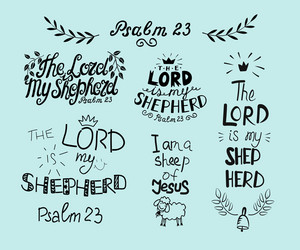 Psalm 23
The Lord
My Shepherd
Psalm 23
THE
LORD
is my
SHEPHERD
Psalm 23
The
LORD
is my
SHEP
HERD
THE LORD
is my
SHEPHERD
Psalm 23
I am a
sheep
of
Jesus